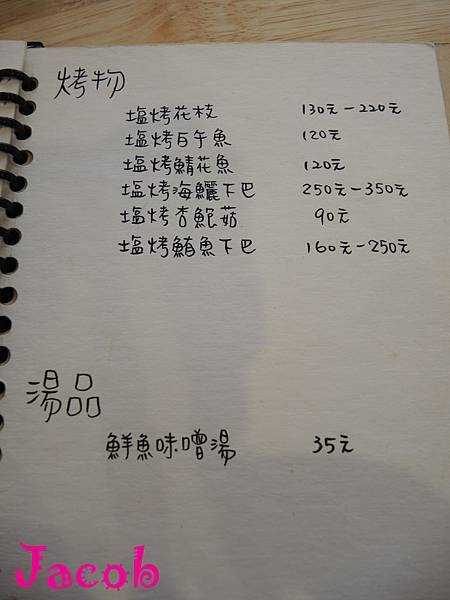 烤物
塩烤花枝 130元-220元
塩烤百午魚 120元
塩烤鯖花魚 120元
塩烤海鱺下巴 250元-350元
塩烤杏鮑菇 90元
塩烤鮪魚下巴 160元-250元
湯品
鮮魚味噌湯 35元
Jacob